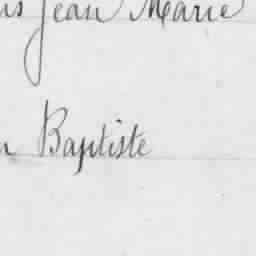 Jean Marie
Baptiste